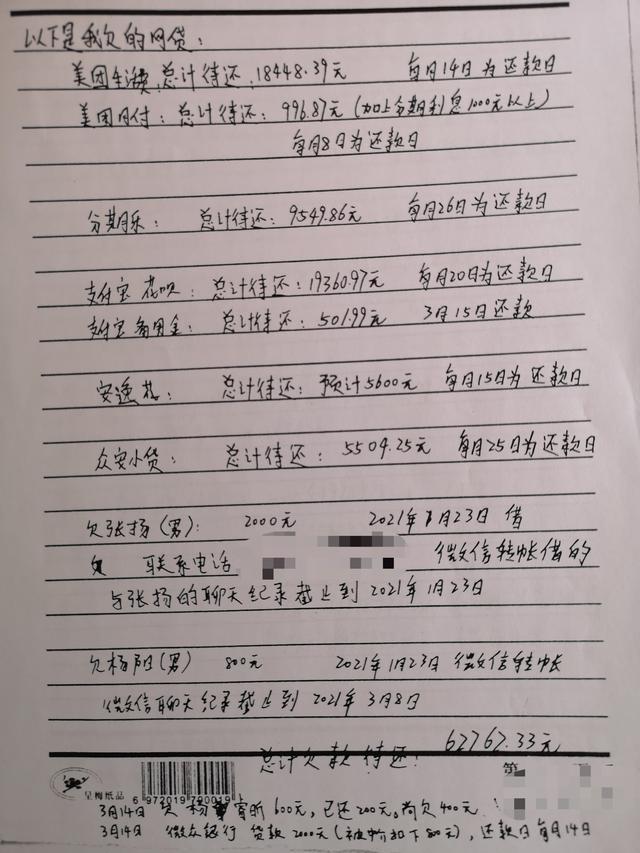 以下是我欠的网贷:
美团生活费:总计待还:18448.39元 每月14日为还款日
美团月付:总计待还:996.87元(加上分期利息1000元以上)
每月8日为还款日
分期乐:总计待还:9549.86元 每月26日为还款日
支付宝花呗:总计待还:19360.97元 每月20日为还款日
支付宝备用金:总计待还:501.99元 3月15日还款
安逸花:总计待还:预计5600元 每月15日为还款日
众安小贷:总计待还:5504.25元 每月25日为还款日
欠张扬(男):2000元 2021年1月23日借
联系电话 微信转帐借的
与张扬的聊天纪录截止到2021年1月23日
欠杨阳(男) 800元 2021年1月23日 微信转帐
微信聊天纪录截止到2021年3月8日
总计欠款待还:62762.33元
呈梅纸品 6 972019 790019 第
3月14日 欠杨 600元,已还200元,尚欠400元
3月14日 微众银行 贷款2000元(被 扣下800元),还款日每月14日